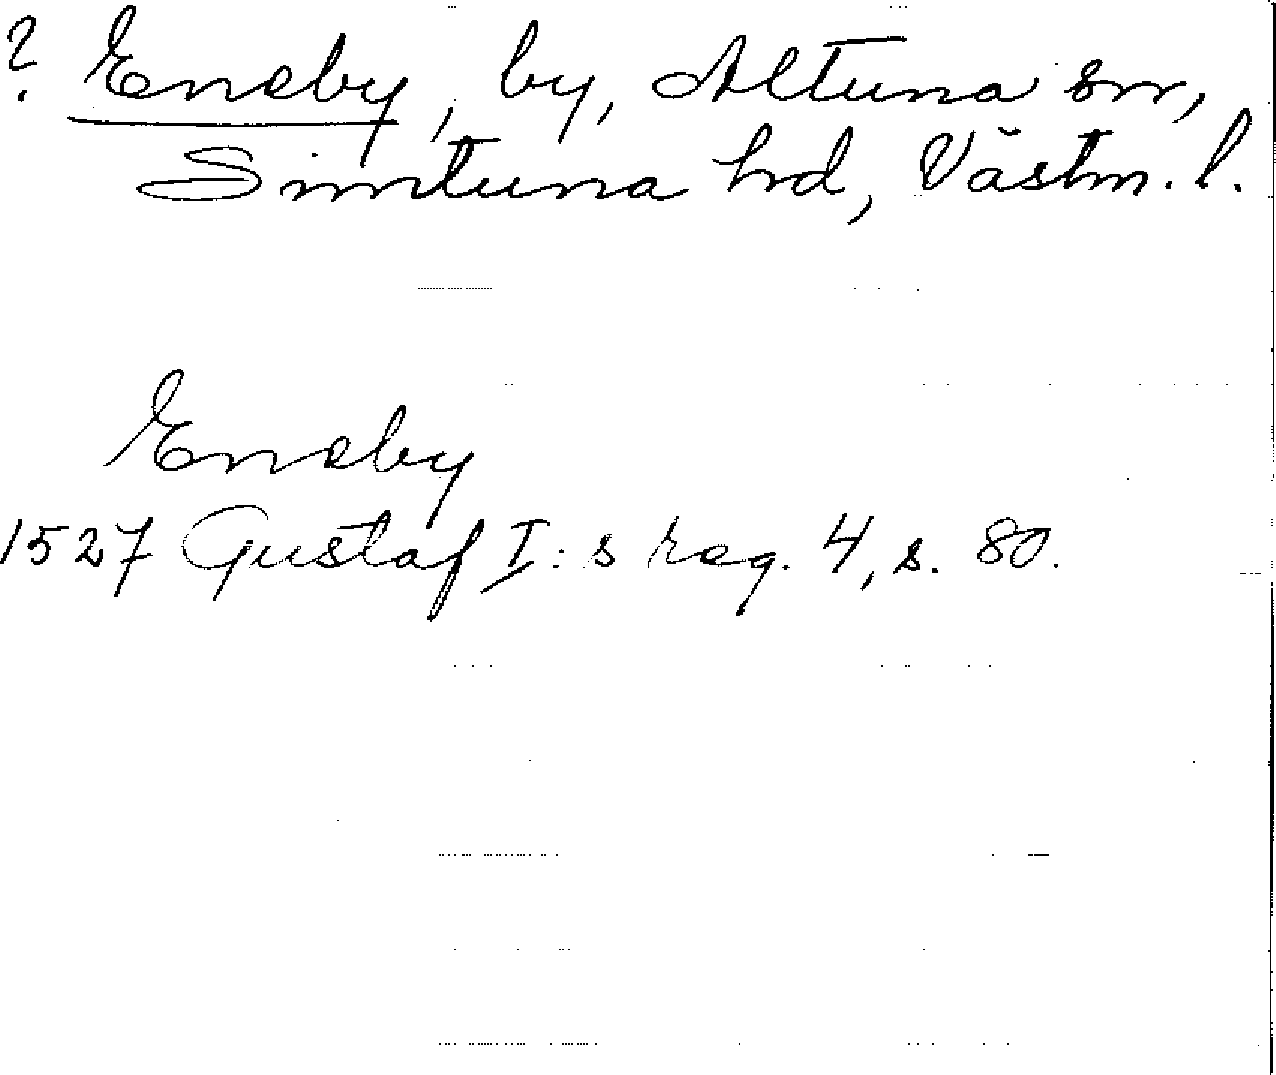 ? Eneby, by, Altuna sn,
Simtuna hd, Västm. l.
Eneby
1527 Gustaf I:s reg. 4, s. 80.